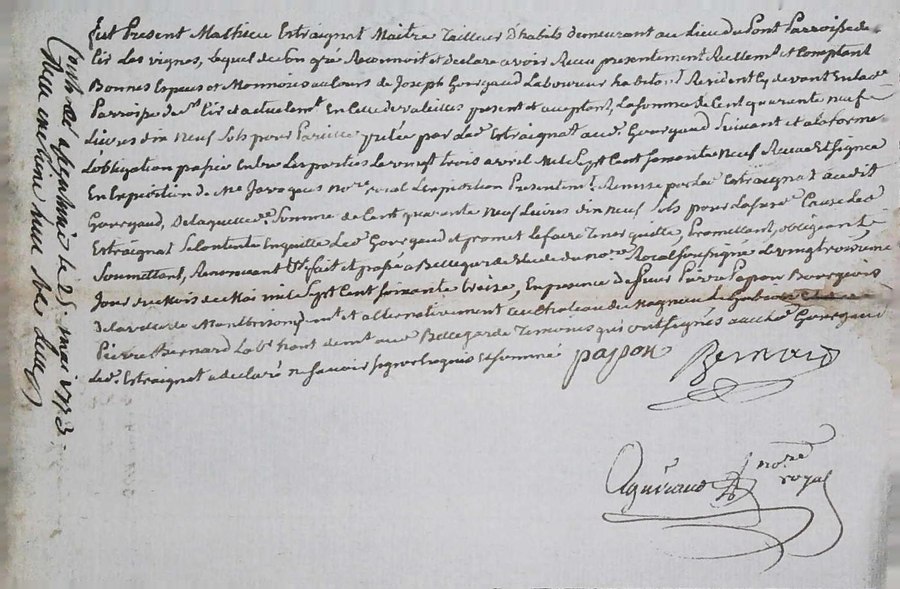 Fut Present Mathieu Extraignat Maitre Tailleur D'habits demeurant au Lieu du Pont Parroisse de
Cir Les vignes, Lequel de son gré Reconnoit et declare avoir Receu presentement Reellemt. et Comptant
Bonnes Especes et Monnoies au Cours de Joseph Gourgaud Laboureur habitant Resident Cy devant En Lade.
Parroisse de St. Cir et actuelemt. En Celle de valeilles present et acceptant, La somme de Cent quarante neuf
Livres dix neuf sols pour Pareille pretée par Led. Extraignat aud. Gourgaud Suivant et a la forme
L'obligation passée Entre Les parties Le vingt trois avril Mil Sept Cent soixante Neuf Receue Et signée
En Expedition de Me Javogues nore. royal L'expedition Presentemt. Remise par Led. Extraignat audit
Gourgaud, De laquelle de. Somme de Cent quarante Neuf Livres dix Neuf sols pour La susd. Cause Led.
Extraignat se Contente En quitte Led. Gourgaud et promet Le faire Tenir quitte, Promettant, obligeant
Soumettant, Renonceant &c fait et passé a Bellegarde Etude du nore. Royal soussigné Le vingt troisieme
Jour du Mois de Mai mil Sept Cent soixante treize, En presence de Sieur Pierre Papon Bourgeois
de la ville de Montbrison y demt. et alternativement au Chateau du Magnieu
Pierre Bernard Labr. hant. demt. aud. Bellegarde Temoins qui ont signés avec Led. Gourgaud
Led. Extraignat a declaré ne savoir signer Enquis et sommé
papon Bernard
Aguiraud nore royal
Conté et a le 25 mai 1773
Receu